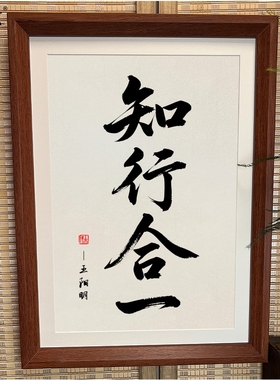 知行合一
—王阳明